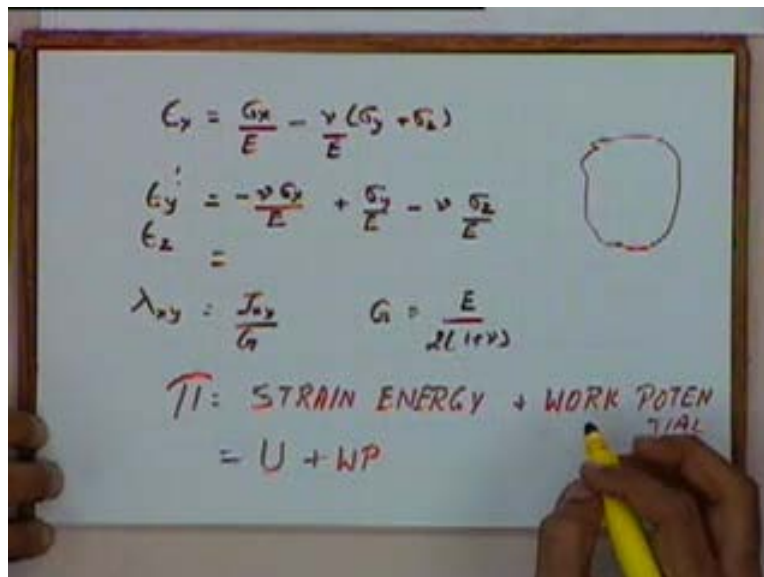 εx = σx/E - ν/E (σy + σz)
εy = -νσx/E + σy/E - ν σz/E
εz =
λxy = τxy/G G = E/2(1+ν)
Π = STRAIN ENERGY + WORK POTEN
TIAL
= U + WP